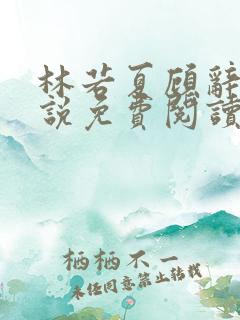 林若夏顾辞
説免費閱讀
栖栖不一
未经同意禁止转载